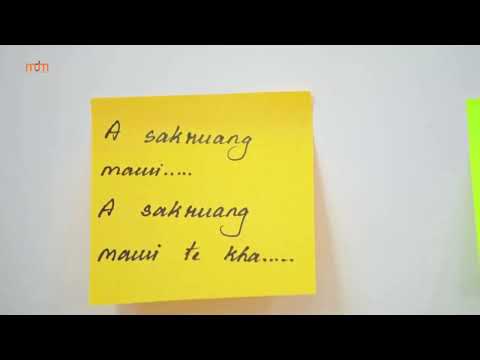 mdm
A sakruang
mawi.....
A sakruang
mawi te kha.....